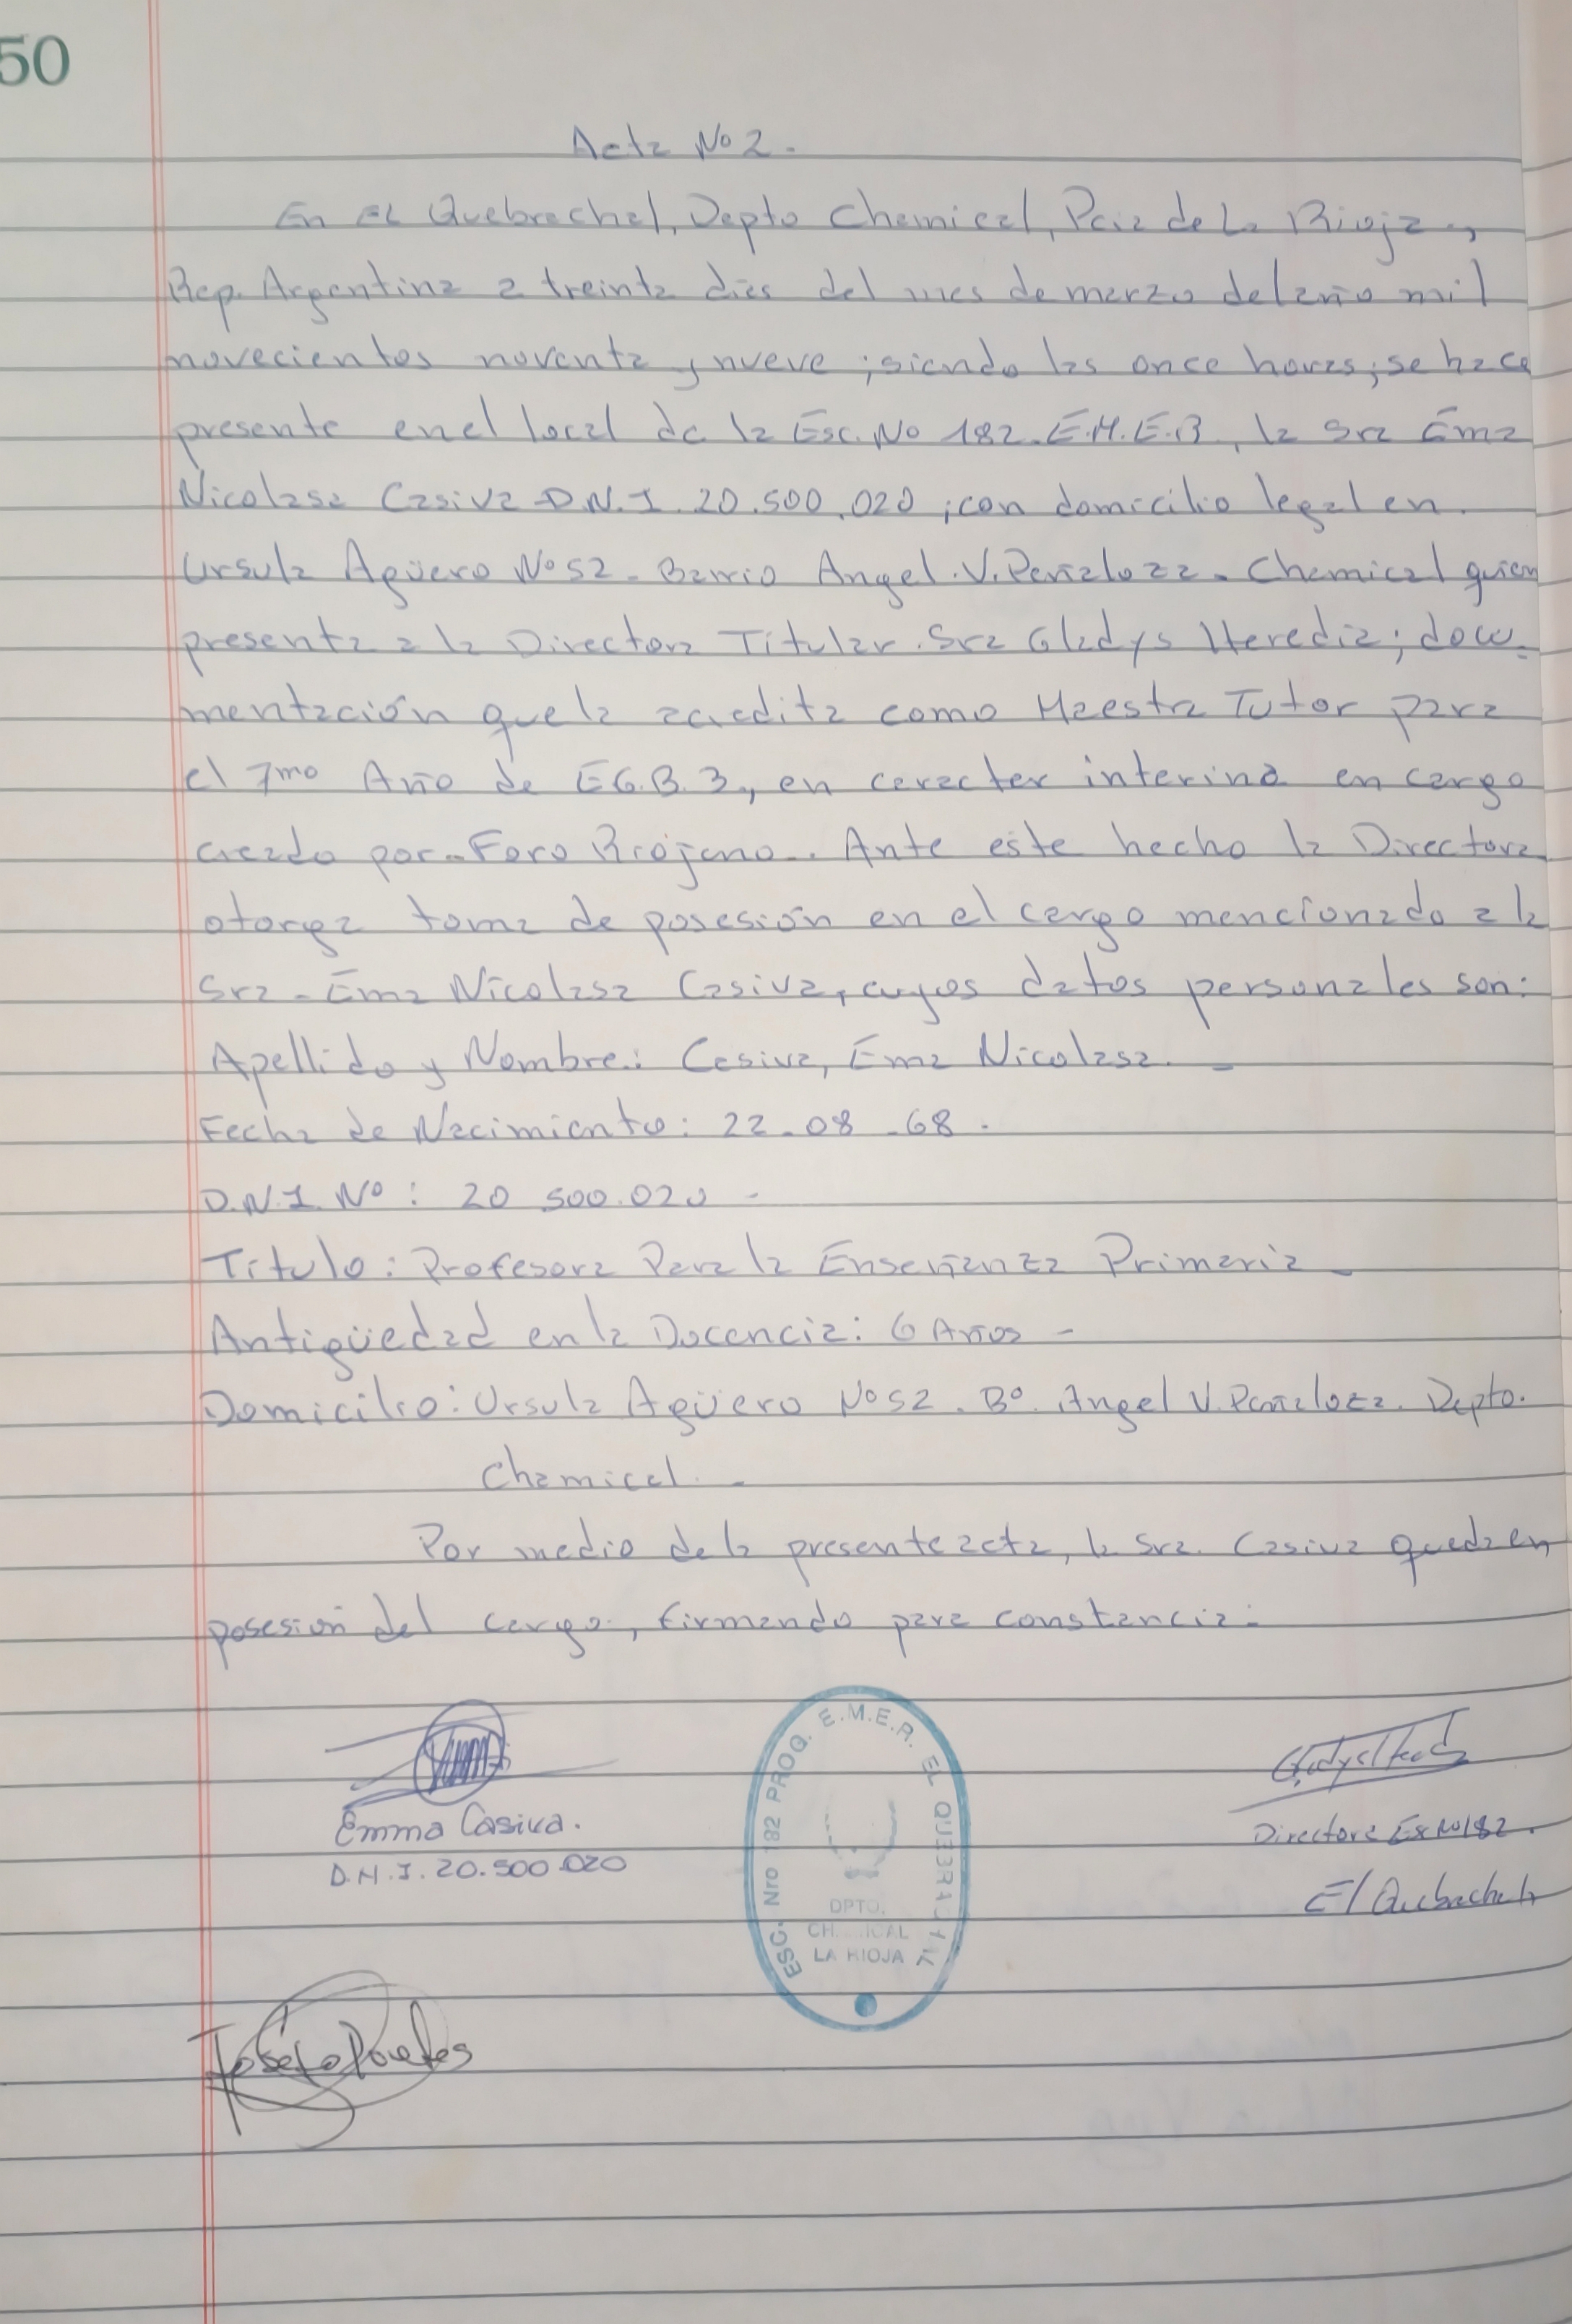 50
Acta No 2.
En EL Quebrachal, Depto Chamical, Pcia de La Rioja,
Rep. Argentina a treinta días del mes de marzo del año mil
novecientos noventa y nueve; siendo las once horas; se hace
presente en el local de la Esc. No 182. E.M.E.B, la Sra Ema
Nicolasa Casiva D.N.I. 20.500.020; con domicilio legal en
Ursula Agüero No 52 - Barrio Angel. V. Peñaloza. Chamical quien
presenta a la Directora Titular. Sra Gladys Heredia; docu-
mentación que la acredita como Maestra Tutor para
el 7mo Año de E.G.B. 3, en caracter interina en cargo
creado por Foro Riojano. Ante este hecho la Directora
otorga toma de posesión en el cargo mencionado a la
Sra - Ema Nicolasa Casiva, cuyos datos personales son:
Apellido y Nombre: Casiva, Ema Nicolasa.
Fecha de Nacimiento: 22-08-68.
D.N.I. No: 20 500.020 -
Título: Profesora Para la Enseñanza Primaria -
Antigüedad en la Docencia: 6 Años -
Domicilio: Ursula Agüero No 52. Bo. Angel V. Peñaloza. Depto.
Chamical. -
Por medio de la presente acta, la Sra. Casiva queda en
posesión del cargo, firmando para constancia:
Emma Casiva.
D.N.I. 20.500.020
ESC. Nro 182 PROQ. E.M.E.R. EL QUEBRACHAL
DPTO.
CHAMICAL
LA RIOJA
Directora Esc No 182.
El Quebrachal